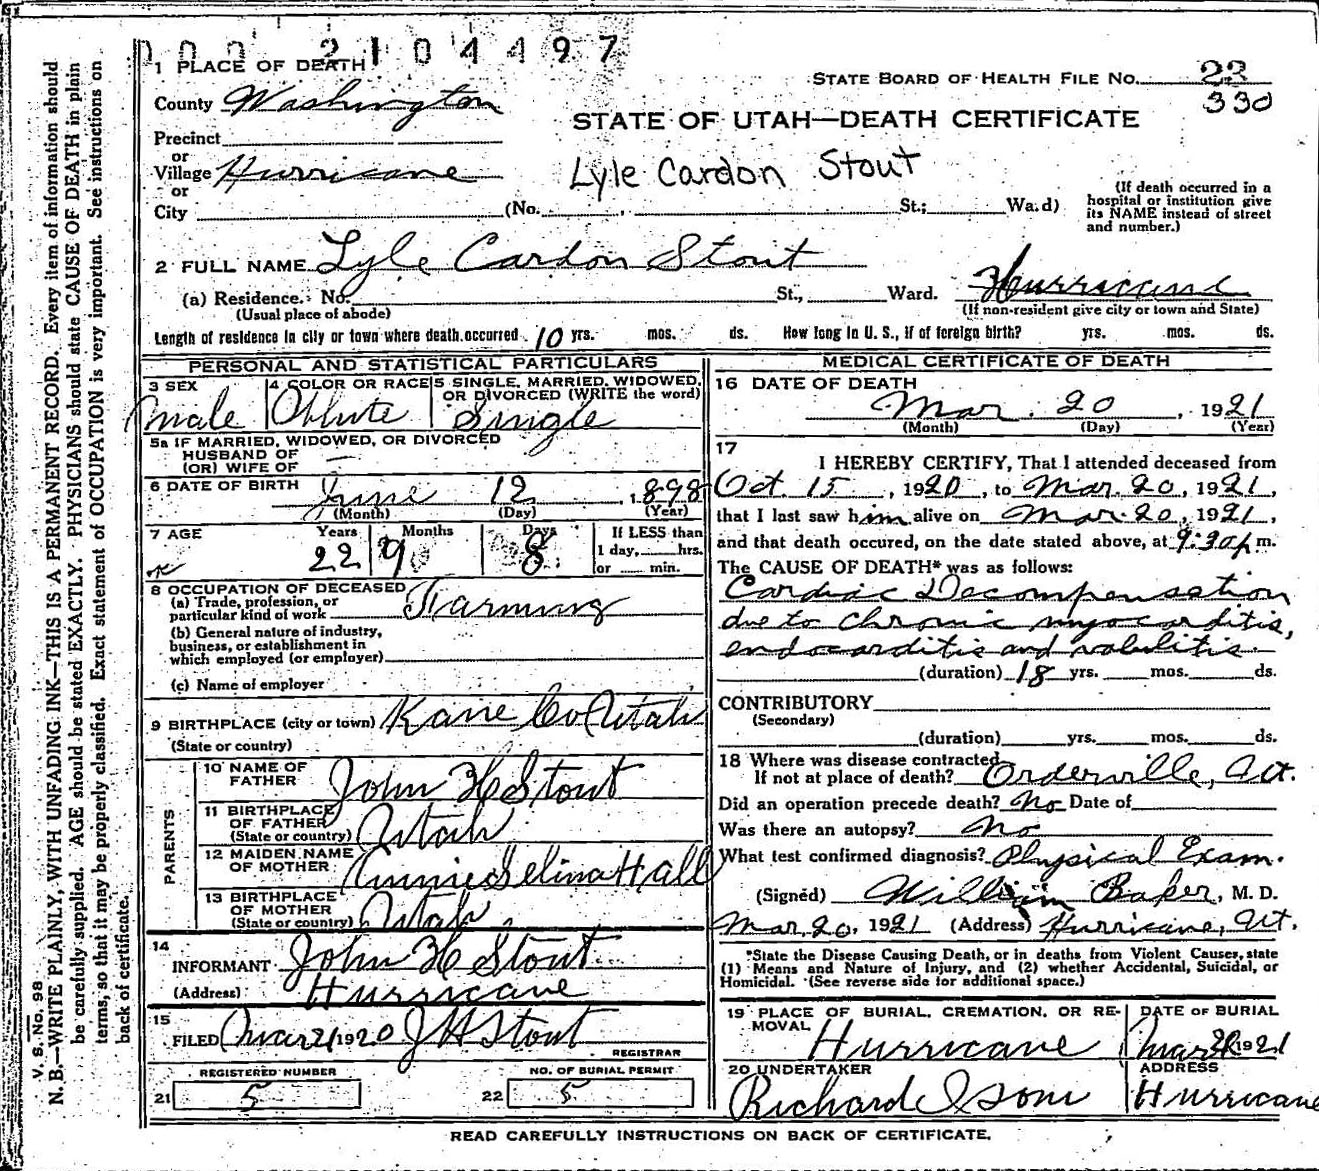 000 2104497
1 PLACE OF DEATH
STATE BOARD OF HEALTH FILE No. 23
330
County Washington
STATE OF UTAH—DEATH CERTIFICATE
Precinct
or
Village Hurricane
Lyle Cardon Stout
or
City (No. St.; Wa.d)
(If death occurred in a hospital or institution give its NAME instead of street and number.)
2 FULL NAME Lyle Cardon Stout
(a) Residence. No. St., Ward. Hurricane
(Usual place of abode) (If non-resident give city or town and State)
Length of residence in city or town where death occurred 10 yrs. mos. ds. How long in U. S., if of foreign birth? yrs. mos. ds.
PERSONAL AND STATISTICAL PARTICULARS
3 SEX 4 COLOR OR RACE 5 SINGLE, MARRIED, WIDOWED,
OR DIVORCED (WRITE the word)
male White Single
5a IF MARRIED, WIDOWED, OR DIVORCED
HUSBAND OF
(OR) WIFE OF —
6 DATE OF BIRTH June 12 1898
(Month) (Day) (Year)
7 AGE Years Months Days If LESS than
22 9 8 1 day, hrs.
or min.
8 OCCUPATION OF DECEASED
(a) Trade, profession, or
particular kind of work Farming
(b) General nature of industry,
business, or establishment in
which employed (or employer)
(c) Name of employer
9 BIRTHPLACE (city or town) Kane Co Utah
(State or country)
PARENTS
10 NAME OF
FATHER John H Stout
11 BIRTHPLACE
OF FATHER
(State or country) Utah
12 MAIDEN NAME
OF MOTHER Annie Selina Hall
13 BIRTHPLACE
OF MOTHER
(State or country) Utah
14
INFORMANT John H Stout
(Address) Hurricane
15
FILED Mar 21 1920 J H Stout
REGISTRAR
REGISTERED NUMBER NO. OF BURIAL PERMIT
21 5 22 5
MEDICAL CERTIFICATE OF DEATH
16 DATE OF DEATH
Mar. 20, 1921
(Month) (Day) (Year)
17
I HEREBY CERTIFY, That I attended deceased from
Oct. 15, 1920, to Mar. 20, 1921,
that I last saw him alive on Mar. 20, 1921,
and that death occured, on the date stated above, at 9:30 p m.
The CAUSE OF DEATH* was as follows:
Cardiac Decompensation
due to chronic myocarditis,
endocarditis and valvulitis.
(duration) 18 yrs. mos. ds.
CONTRIBUTORY
(Secondary)
(duration) yrs. mos. ds.
18 Where was disease contracted
If not at place of death? Orderville, Ut.
Did an operation precede death? No Date of
Was there an autopsy? No
What test confirmed diagnosis? Physical Exam.
(Signed) William Baker, M. D.
Mar. 20, 1921 (Address) Hurricane, Ut.
*State the Disease Causing Death, or in deaths from Violent Causes, state
(1) Means and Nature of Injury, and (2) whether Accidental, Suicidal, or
Homicidal. (See reverse side for additional space.)
19 PLACE OF BURIAL, CREMATION, OR RE-
MOVAL Hurricane
DATE OF BURIAL
Mar 1921
20 UNDERTAKER
Richard Isom
ADDRESS
Hurricane
READ CAREFULLY INSTRUCTIONS ON BACK OF CERTIFICATE.
V. S. No. 98
N. B.—WRITE PLAINLY, WITH UNFADING INK—THIS IS A PERMANENT RECORD. Every item of information should
be carefully supplied. AGE should be stated EXACTLY. PHYSICIANS should state CAUSE OF DEATH in plain
terms, so that it may be properly classified. Exact statement of OCCUPATION is very important. See instructions on
back of certificate.